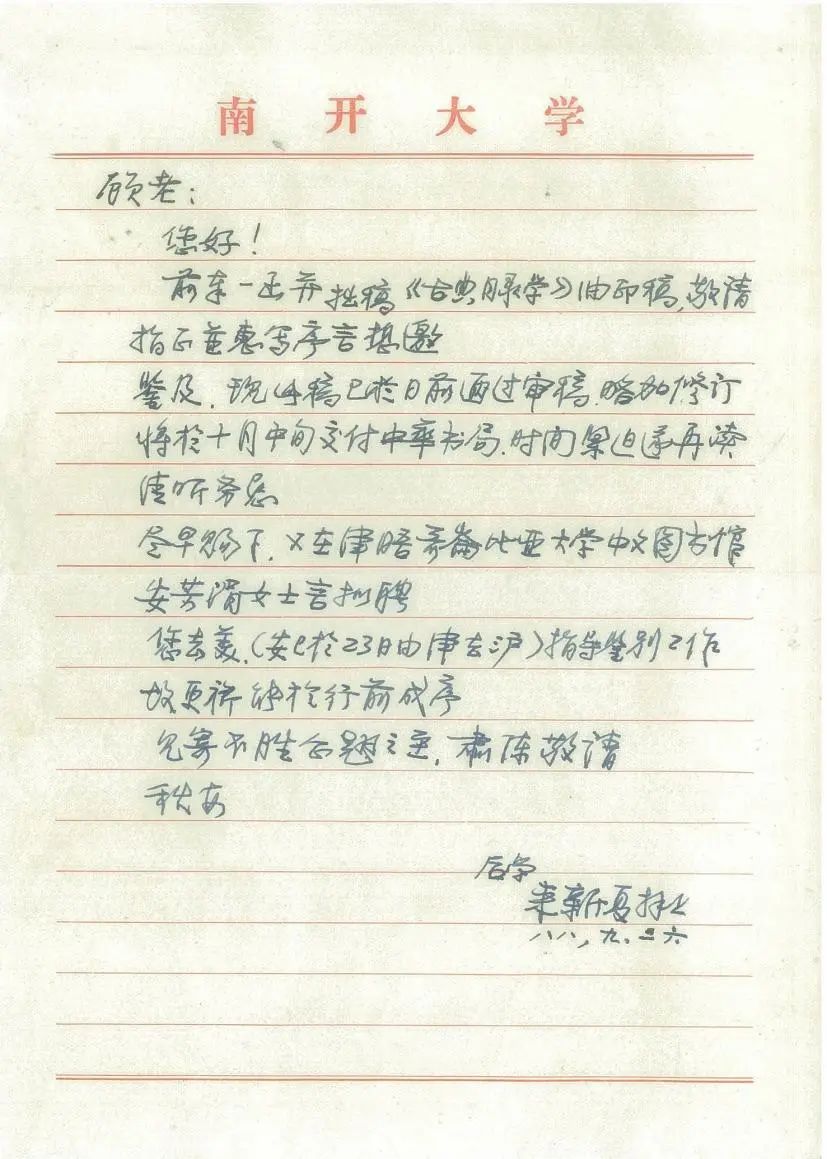 南开大学
顾老：
您好！
前奉一函并拙稿《古典目录学》油印稿，敬请
指正并惠写序言，想邀
鉴及。现此稿已于日前通过审稿，略加修订
将于十月中旬交付中华书局，时间紧迫，遂再渎
清听，务恳
尽早赐下。又在津晤哥伦比亚大学中文图书馆
安芳湄女士言拟聘
您去美，（安已于23日由津去沪）指导鉴别工作
故更祈能于行前成序
见寄，不胜企翘之至，肃陈敬请
秋安
后学
来新夏拜上
八八，九．二六